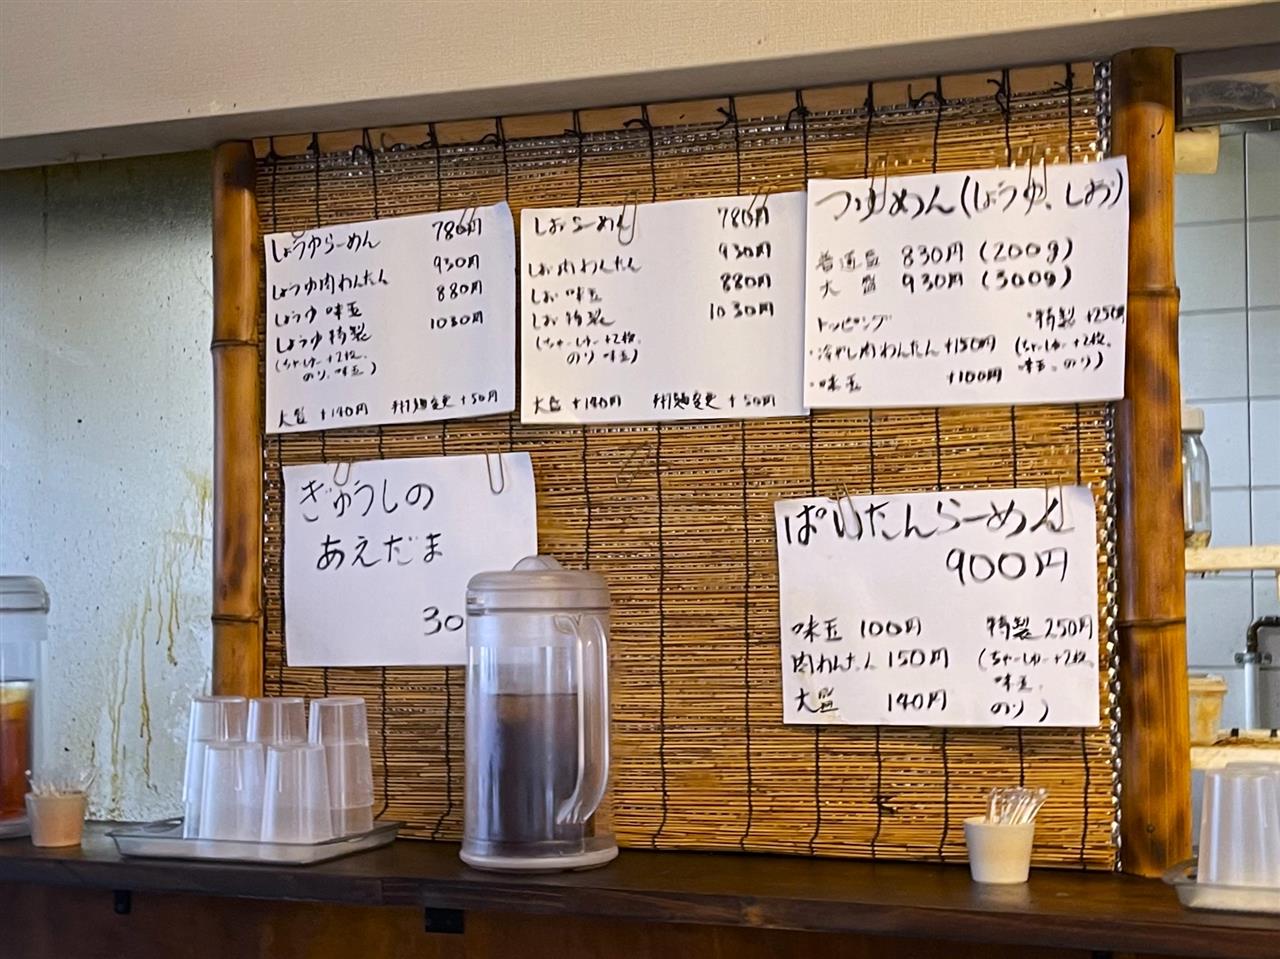 しょうゆらーめん 780円
しょうゆ肉わんたん 930円
しょうゆ味玉 880円
しょうゆ特製 1030円
(ちゃーしゅー+2枚、
のり、味玉)
大盛 +140円 手打麺変更 +50円
しおらーめん 780円
しお肉わんたん 930円
しお味玉 880円
しお特製 1030円
(ちゃーしゅー+2枚、
のり 味玉)
大盛 +140円 手打麺変更 +50円
つけめん(しょうゆ、しお)
普通盛 830円(200g)
大盛 930円(300g)
トッピング
・冷やし肉わんたん +150円
・味玉 +100円
・特製 +250円
(ちゃーしゅー+2枚、
味玉、のり)
ぎゅうしの
あえだま
30
ぱいたんらーめん
900円
味玉 100円
肉わんたん 150円
大盛 140円
特製 250円
(ちゃーしゅー+2枚、
味玉、
のり)